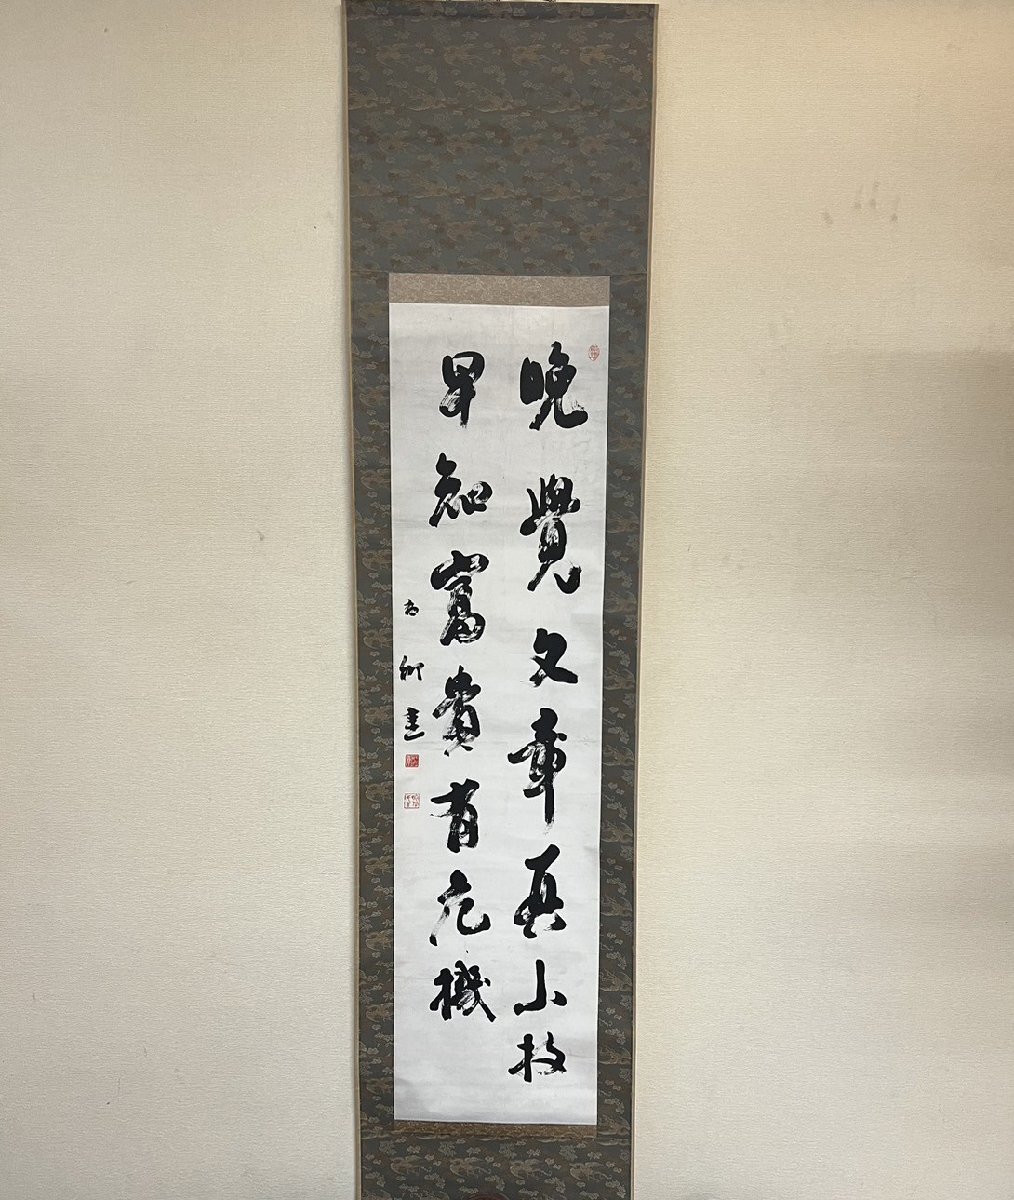 晩覺文章真小技
早知富貴有危機